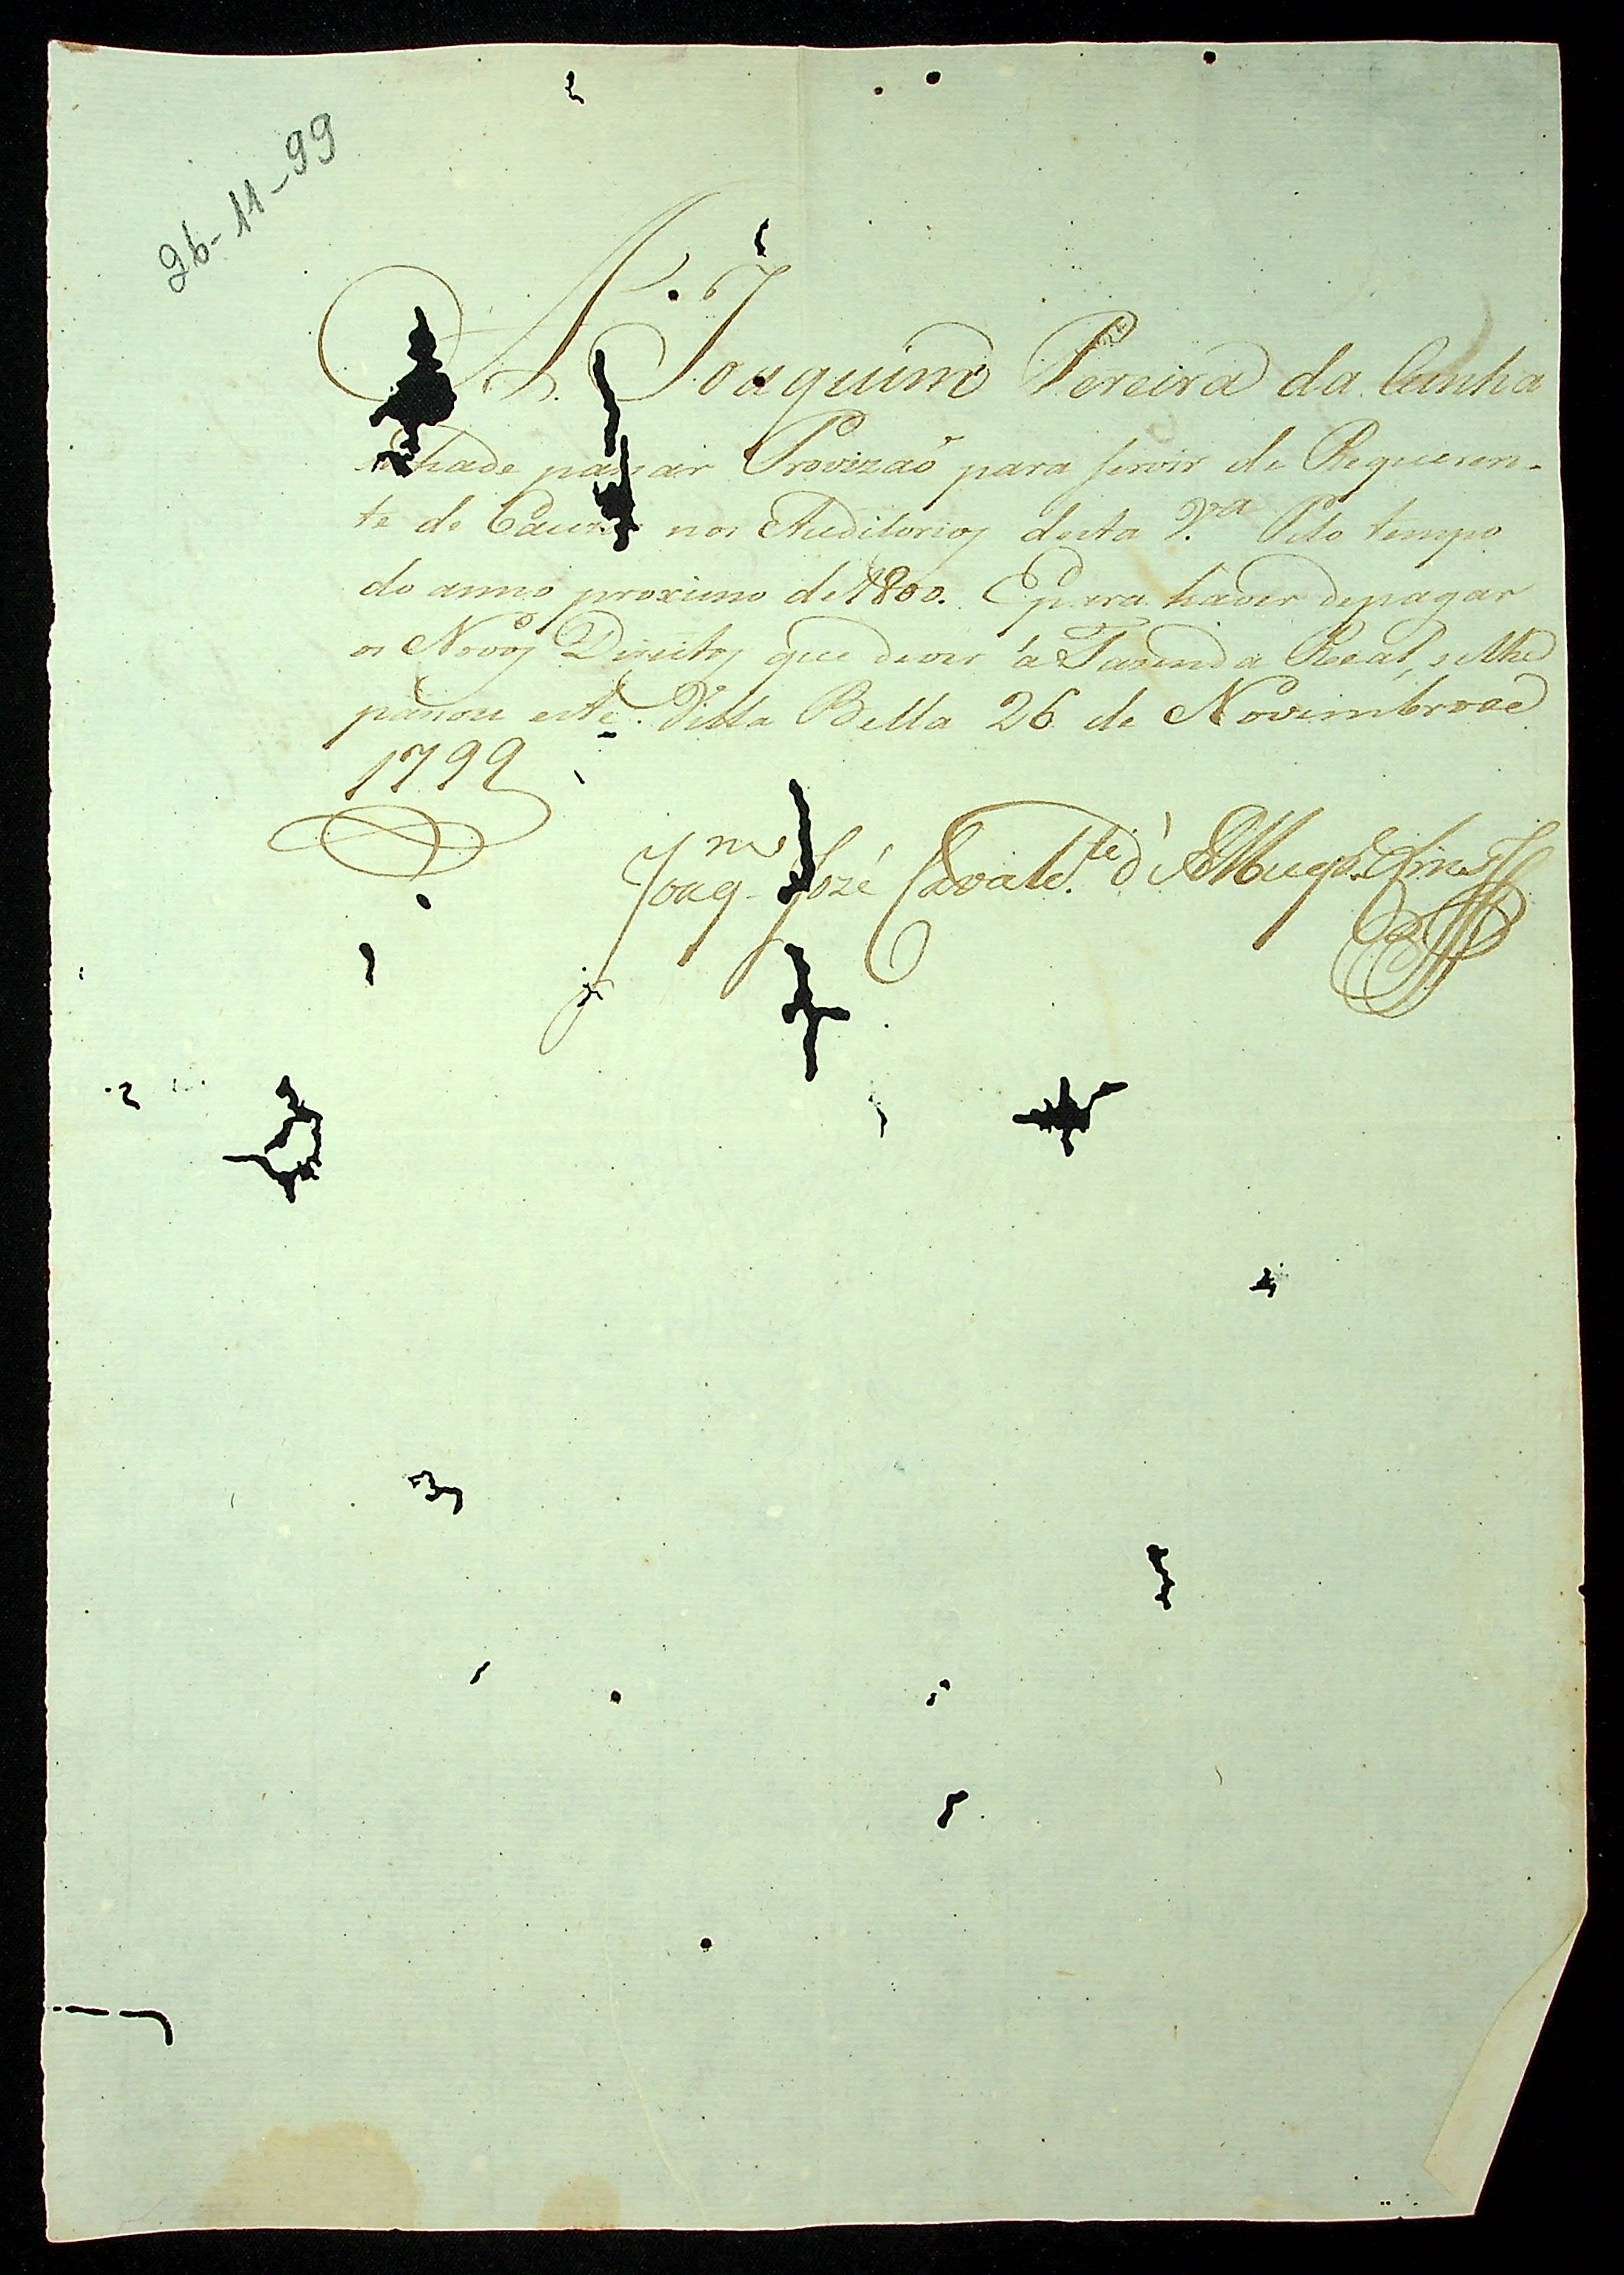 26-11-99
A Joaquim Pereira da Cunha
hade passar Provizaõ para servir de Requeren-
te de Cauzas nos Auditorios desta V.ª Pelo tempo
do anno proximo de 1800. E para haver de pagar
os Novos Direitos que dever á Fazenda Real, se lhe
passou este. Villa Bella 26 de Novembro de
1799
Joaq.m José Cavalc.te d'Albuqr.e Lins